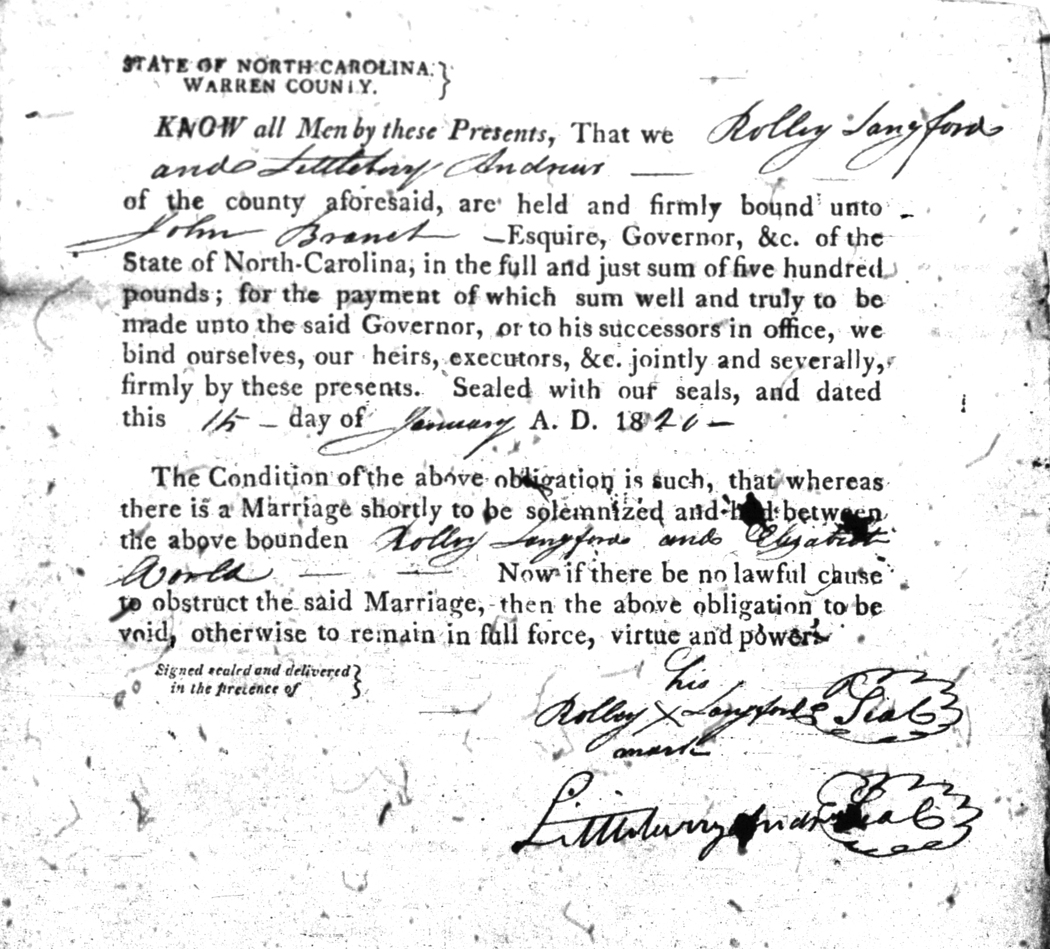 STATE OF NORTH-CAROLINA. }
WARREN COUNTY.
KNOW all Men by these Presents, That we Rolley Langford
and Littleberry Andrews
of the county aforesaid, are held and firmly bound unto
John Branch Esquire, Governor, &c. of the
State of North-Carolina, in the full and just sum of five hundred
pounds; for the payment of which sum well and truly to be
made unto the said Governor, or to his successors in office, we
bind ourselves, our heirs, executors, &c. jointly and severally,
firmly by these presents. Sealed with our seals, and dated
this 15 day of January A. D. 1820
The Condition of the above obligation is such, that whereas
there is a Marriage shortly to be solemnized and had between
the above bounden Rolley Langford and Elizabeth
World Now if there be no lawful cause
to obstruct the said Marriage, then the above obligation to be
void, otherwise to remain in full force, virtue and power.
Signed sealed and delivered }
in the presence of
his
Rolley X Langford Seal
mark
Littleberry Andrews Seal